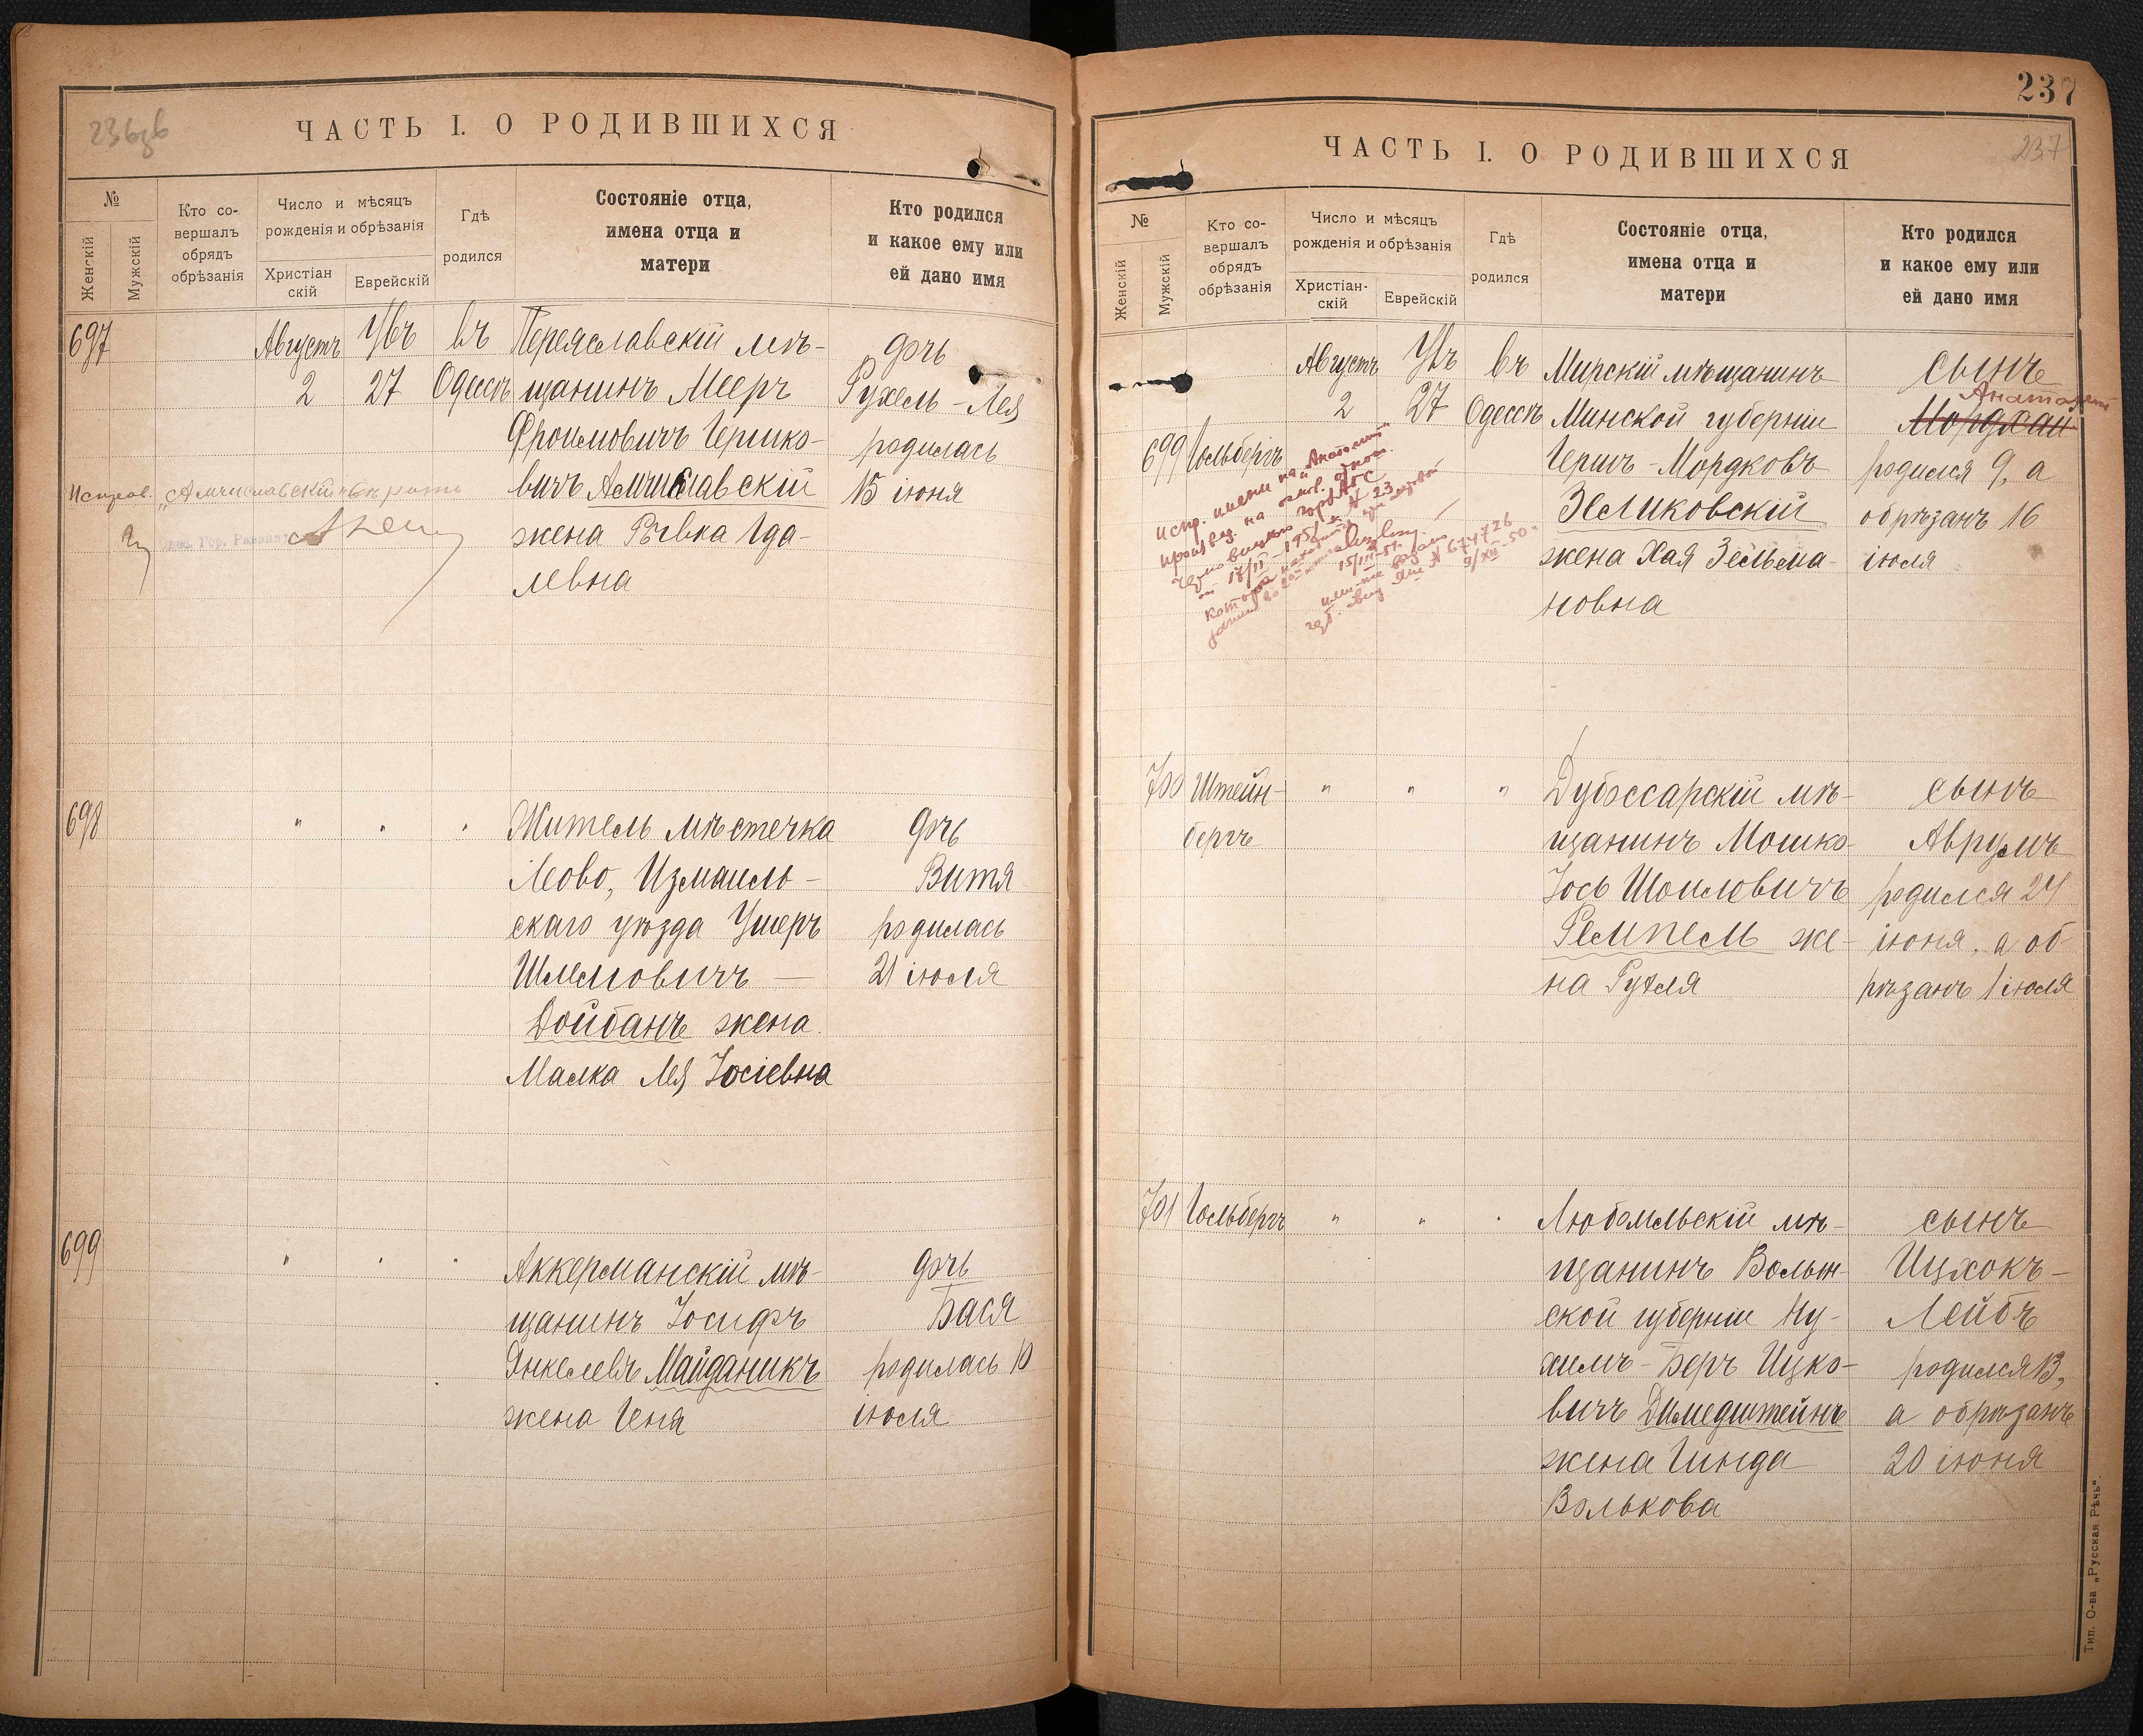 236зв
ЧАСТЬ I. О РОДИВШИХСЯ
№
Женскій
Мужскій
Кто со-
вершалъ
обрядъ
обрѣзанія
Число и мѣсяцъ
рожденія и обрѣзанія
Христіан
скій
Еврейскій
Гдѣ
родился
Состояніе отца,
имена отца и
матери
Кто родился
и какое ему или
ей дано имя
697
Августъ
2
Убъ
27
въ
Одессѣ
Переяславскій мѣ-
щанинъ Мееръ
Фроимовичъ Гершко-
вичъ Амчиславскій
жена Ривка Іда-
левна
дочь
Рухель-Лея
родилась
15 іюня
Исправ. „Амчиславскій" вѣрить
698
" " "
Житель мѣстечка
Леово, Измаиль-
скаго уѣзда Ушеръ
Шлемовичъ —
Дойбанъ жена
Малка Лея Іосіевна
дочь
Витя
родилась
21 іюля
699
" " "
Аккерманскій мѣ-
щанинъ Іосифъ
Янкелевъ Майданикъ
жена Геня
дочь
Бася
родилась 10
іюля
237
ЧАСТЬ I. О РОДИВШИХСЯ
237
№
Женскій
Мужскій
Кто со-
вершалъ
обрядъ
обрѣзанія
Число и мѣсяцъ
рожденія и обрѣзанія
Христіан-
скій
Еврейскій
Гдѣ
родился
Состояніе отца,
имена отца и
матери
Кто родился
и какое ему или
ей дано имя
699
Гольбергъ
Августъ
2
Убъ
27
въ
Одессѣ
Мирскій мѣщанинъ
Минской губерніи
Гершъ-Мордковъ
Зеликовскій
жена Хая Зельма-
новна
сынъ
Анатолий
Мордхай
родился 9, а
обрѣзанъ 16
іюля
Испр. имени на „Анатолий"
произвед. на основ.
15/III-51.
№ 674726
9/XII-50
700
Штейн-
бергъ
" " "
Дубоссарскій мѣ-
щанинъ Мошко-
Іось Шоиловичъ
Ремпель же-
на Рухля
сынъ
Аврумъ
родился 24
іюня, а об-
рѣзанъ 1 іюля
701
Гольбергъ
" " "
Любомльскій мѣ-
щанинъ Волын-
ской губерніи Ну-
химъ-Беръ Ицко-
вичъ
жена Гинда
Волькова
сынъ
Ицхокъ-
Лейбъ
родился 13,
а обрѣзанъ
20 іюня
Тип. О-ва „Русская Рѣчь".